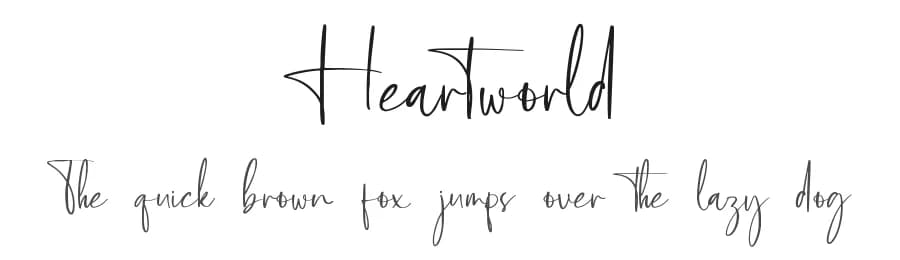 Heartworld
The quick brown fox jumps over the lazy dog